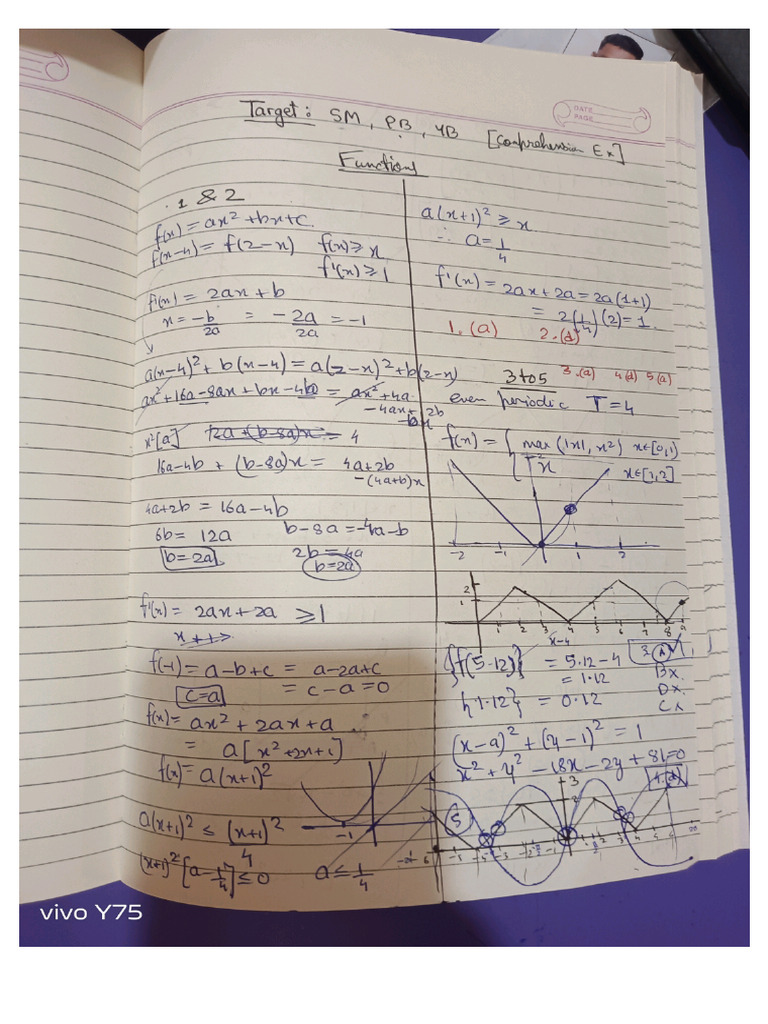 DATE
PAGE
Target: SM, PB, YB [Comprehension Ex]
Functions
1 & 2
f(x) = ax² + bx + c.
f(x-4) = f(2-x) f(x) ≥ x
f'(x) ≥ 1
f'(x) = 2ax + b
x = -b/2a = -2a/2a = -1
a(x-4)² + b(x-4) = a(2-x)² + b(2-x)
ax² + 16a - 8ax + bx - 4b = ax² + 4a
- 4ax + 2b
- bx
x²[a] 12a + (b-8a)x = 4
16a - 4b + (b-8a)x = 4a + 2b
- (4a+b)x
4a + 2b = 16a - 4b
6b = 12a b - 8a = -4a - b
b = 2a 2b = 4a
b = 2a
f'(x) = 2ax + 2a ≥ 1
f(-1) = a - b + c = a - 2a + c
c = a = c - a = 0
f(x) = ax² + 2ax + a
= a[x² + 2x + 1]
f(x) = a(x+1)²
-1
a(x+1)² ≤ (x+1)²/4
(x+1)² [a - 1/4] ≤ 0 a ≤ 1/4
a(x+1)² ≥ x
∴ a = 1/4
f'(x) = 2ax + 2a = 2a(1+1)
= 2(1/4)(2) = 1
1. (a) 2. (d)
3 to 5 3. (a) 4 (d) 5 (a)
even periodic T = 4
f(x) = { max (|x|, x²) x∈[0,1)
x x∈[1,2]
-2 -1 1 2
2
1
1 2 3 4 5 6 7 8 9
x-4
{f(5.12)} = 5.12 - 4 3. (A)
= 1.12 B x
{1.12} = 0.12 D x
C x
(x-9)² + (y-1)² = 1
x² + y² - 18x - 2y + 81 = 0
5
vivo Y75